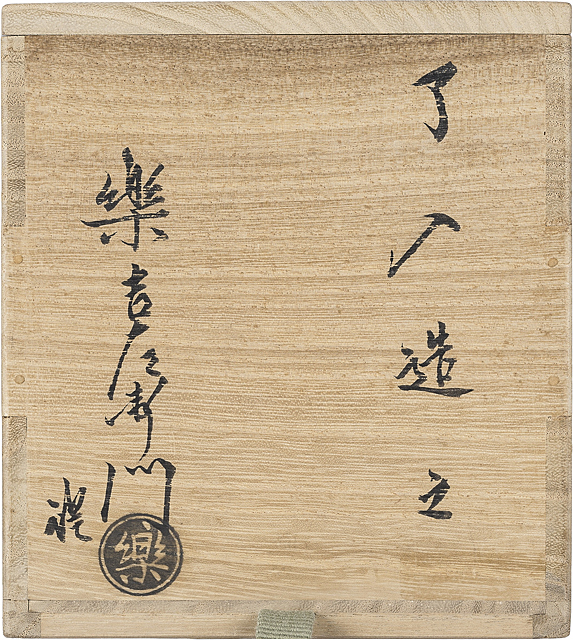 了入造之
樂吉左衛門
證
樂